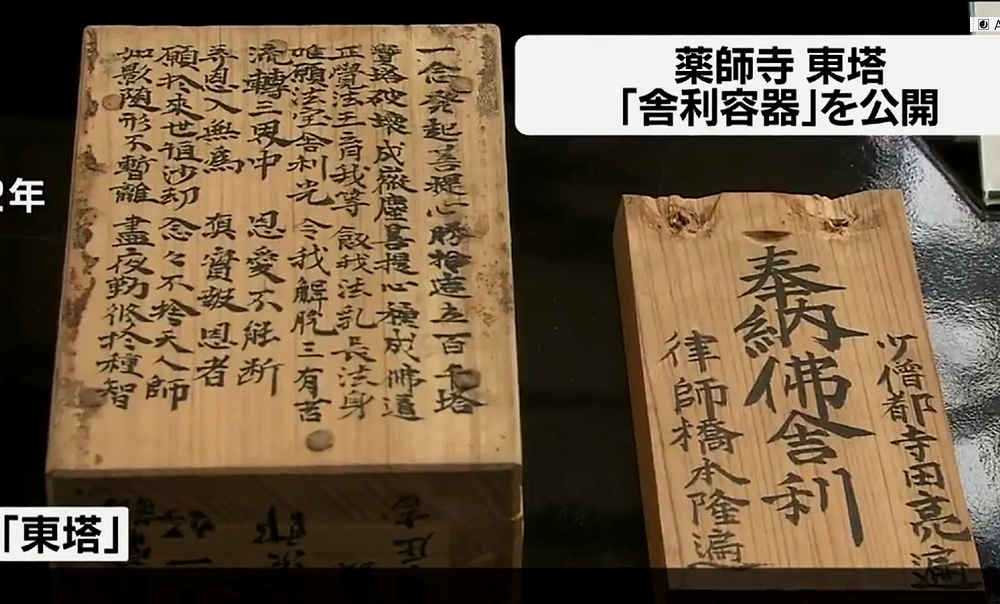 薬師寺 東塔
「舎利容器」を公開
2年
「東塔」
一念發起菩提心 勝於造立百千塔
寶塔破壞成微塵 菩提心種成佛道
正覺法王育我等 飲我法乳長法身
唯願法宝舎利光 令我解脱三有苦
流轉三界中 恩愛不能断
弃恩入無為 真實報恩者
願於來世恒沙劫 念々不捨天人師
如影随形不暫離 晝夜勤修於種智
少僧都寺田亮遍
奉納佛舎利
律師橋本隆遍